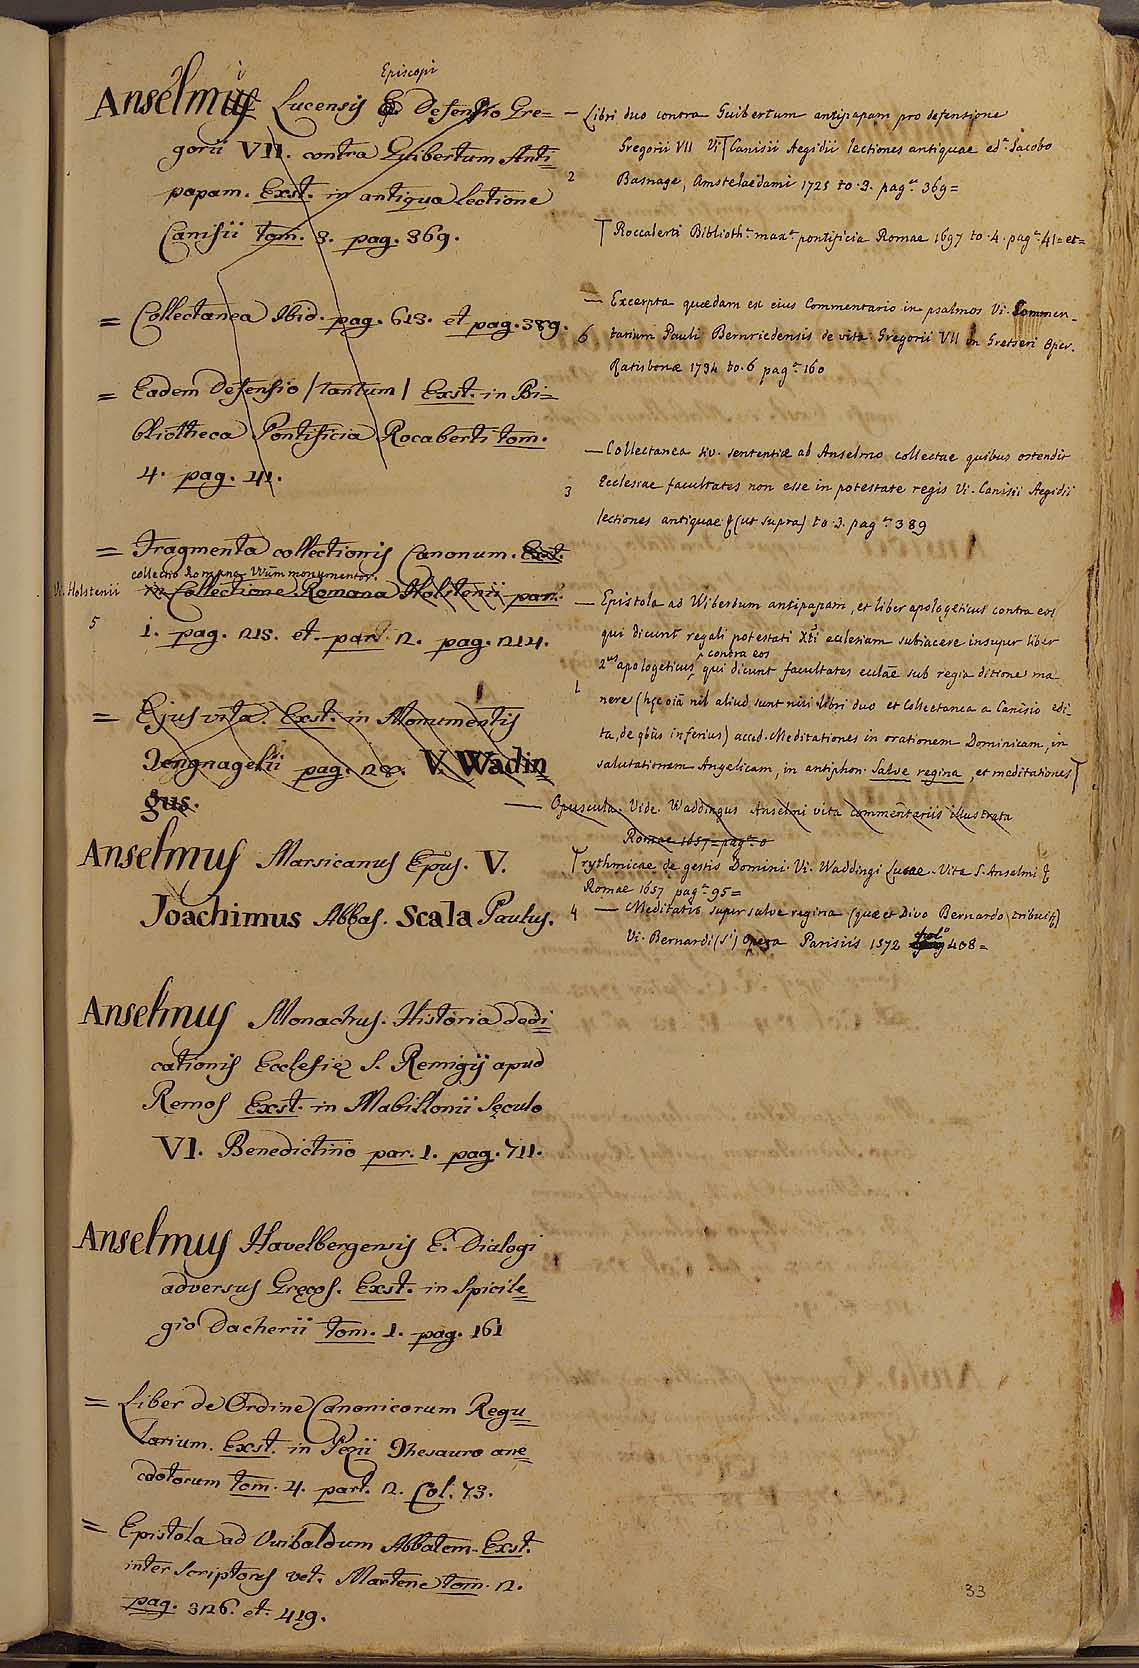 Episcopi
Anselmi Lucensis E. Defensio Gre=
gorii VII. contra Guibertum Anti
papam. Exst. in antiqua lectione
Canisii tom. 3. pag. 369.
= Collectanea Ibid. pag. 613. et pag. 389.
= Eadem Defensio /tantum/ Exst. in Bi=
bliotheca Pontificia Rocaberti tom.
4. pag. 41.
= Fragmenta collectionis Canonum. Exst.
collectio Romana Vetum monumentor.
Vi. Holstenii in Collectione Romana Holstenii par.
5 1. pag. 213. et part. 2. pag. 214.
= Ejus vita. Exst. in Monumentis
Tengnagelii pag. 28. V. Wadin
gus.
Anselmus Marsicanus Epus. V.
Joachimus Abbas. Scala Paulus.
Anselmus Monachus. Historia dedi
cationis Ecclesię S. Remigij apud
Remos Exst. in Mabillonii Sęculo
VI. Benedictino par. 1. pag. 711.
Anselmus Havelbergensis E. Dialogi
adversus Gręcos. Exst. in Spicile
gio Dacherii tom. 1. pag. 161
= Liber de Ordine Canonicorum Regu
larium. Exst. in Pezii Thesauro ane
cdotorum tom. 4. part. 2. Col. 73.
= Epistola ad Wibaldum Abbatem. Exst.
inter Scriptores vet. Martene tom. 2.
pag. 326. et 419.
— Libri duo contra Guibertum antipapam pro defensione
Gregorii VII Vi. Canisii Aegidii lectiones antiquae ed.ᵃ Jacobo
2 Basnage, Amstelaedami 1725 to. 3. pag.ᵃ 369=
Roccaberti Biblioth.ᵃ max.ᵃ pontificia Romae 1697 to. 4. pag.ᵃ 41= et=
— Excerpta quædam ex eius Commentario in psalmos Vi. Commen-
6 tarium Pauli Bernriedensis de vita Gregorii VII in Gretseri Oper.
Ratisbonæ 1734 to. 6 pag.ᵃ 160
— Collectanea siv. sententiæ ab Anselmo collectae quibus ostendit
3 Ecclesiae facultates non esse in potestate regis Vi. Canisii Aegidii
lectiones antiquae (ut supra) to. 3. pag.ᵃ 389
— Epistola ad Wibertum antipapam, et liber apologeticus contra eos
qui dicunt regali potestati Xti ecclesiam subiacere insuper liber
contra eos
2.us apologeticus, qui dicunt facultates ecclæ sub regia ditione ma
1 nere (hęc oiã nil aliud sunt nisi libri duo et Collectanea a Canisio edi-
ta, de qbus inferius) acced. Meditationes in orationem Dominicam, in
salutationem Angelicam, in antiphon. Salve regina, et meditationes
— Opuscula. Vide. Waddingus Anselmi vita commentariis illustrata
Romae 1657= pag.ᵃ 0
rythmicae de gestis Domini. Vi. Waddingi Lucae. Vita S. Anselmi &
Romae 1657 pag.ᵃ 95=
4 — Meditatio super salve regina (quæ et Divo Bernardo tribuitr)
Vi. Bernardi (S.i) Opera Parisiis 1572 fol.o 408=
33